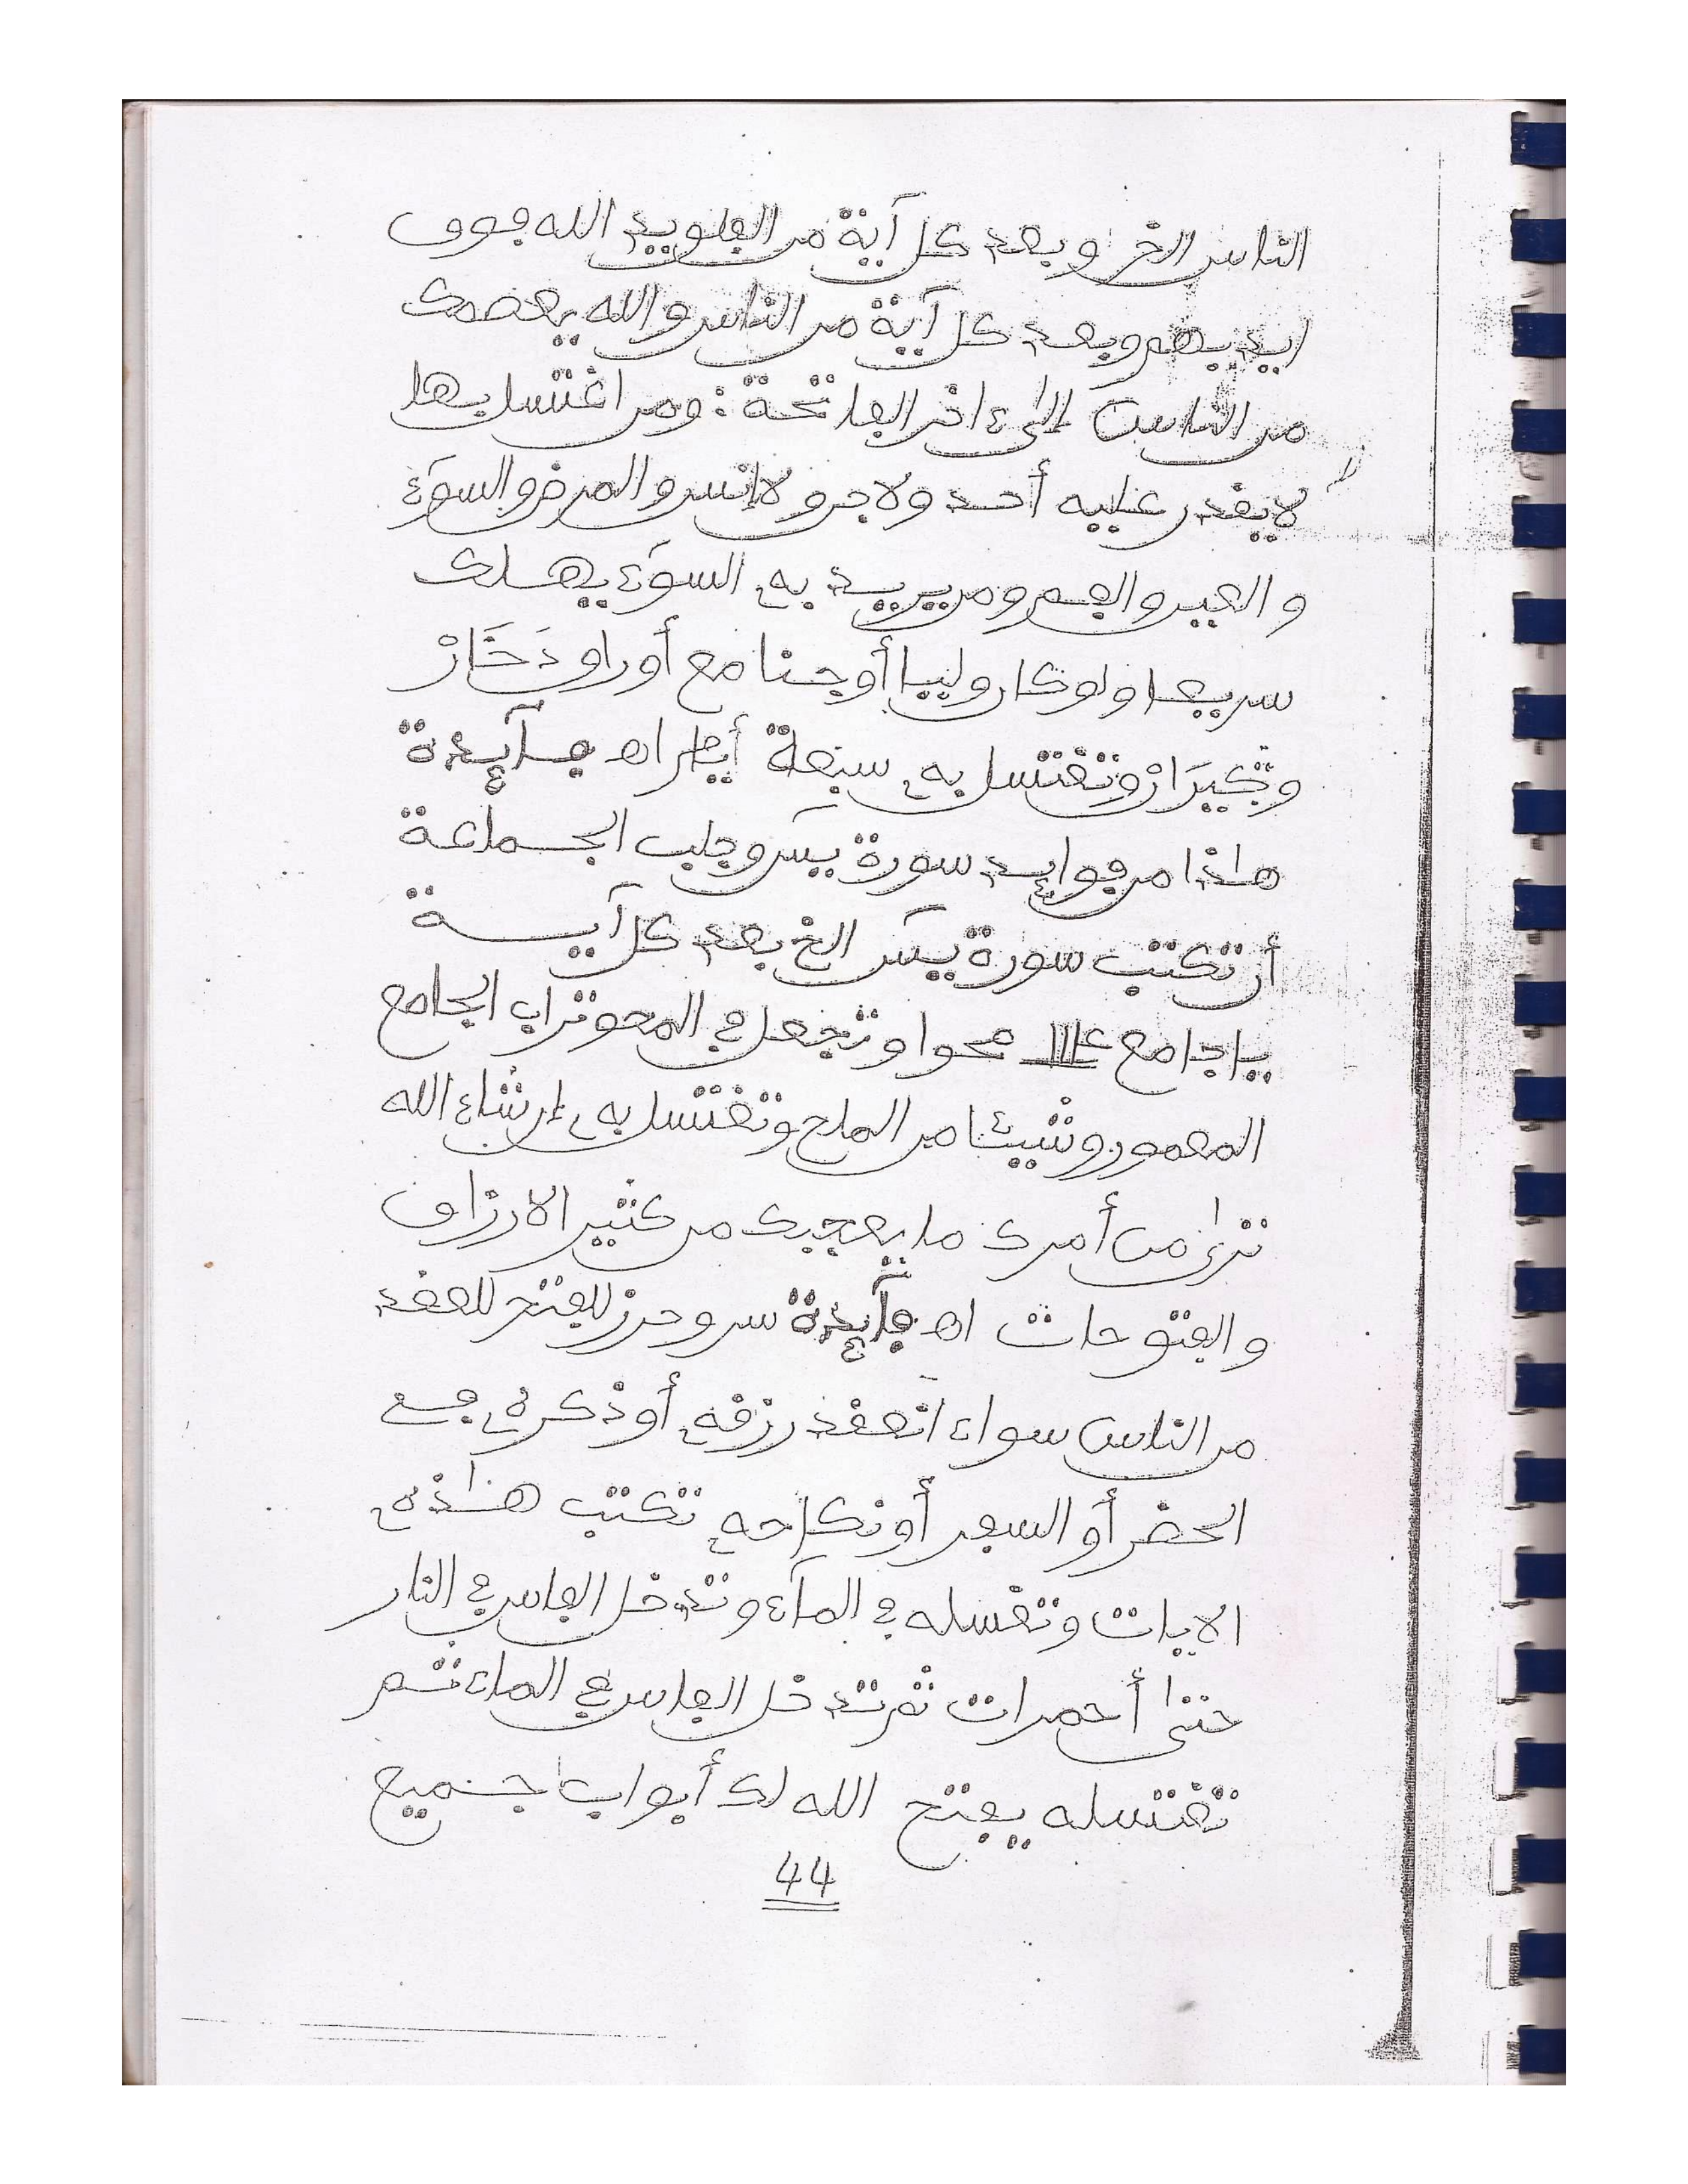 الناس الخ وبعد كل آية من الفلق يد الله فوق
ايديهم وبعد كل آية من الناس والله يعصمك
من الناس إلى ءاخر الفاتحة: ومن اغتسل بها
لا يقدر عليه أحد ولا جن ولا إنس والمرض والسوء
والعين والفم ومن يريد به السوء يهلك
سريعا ولو كان وليا أو جنا مع أوراو دَخَارْ
وتغتسل به سبعة أيام اه فآيدة
هاذا من فوايد سورة يس وجلب الجماعة
أن تكتب سورة يس الخ بعد كل آية
يا جامع ١١٤ محوا وتجعل في المحو تراب الجامع
المعمور وشيئا من الملح وتغتسل به إن شاء الله
ترى من أمرك ما يعجبك من كثير الارزاق
والفتوحات اه فآيدة سر وحرز للفتح للعقد
من الناس سواء انعقد رزقه أو ذكره في
الحضر أو السفر أو نكاحه تكتب هذه
الايات وتغسله في الماء وتدخل الفاس في النار
حتى أحمرات ثم تدخل الفاس في الماء ثم
تغتسله يفتح الله لك أبواب جميع
44